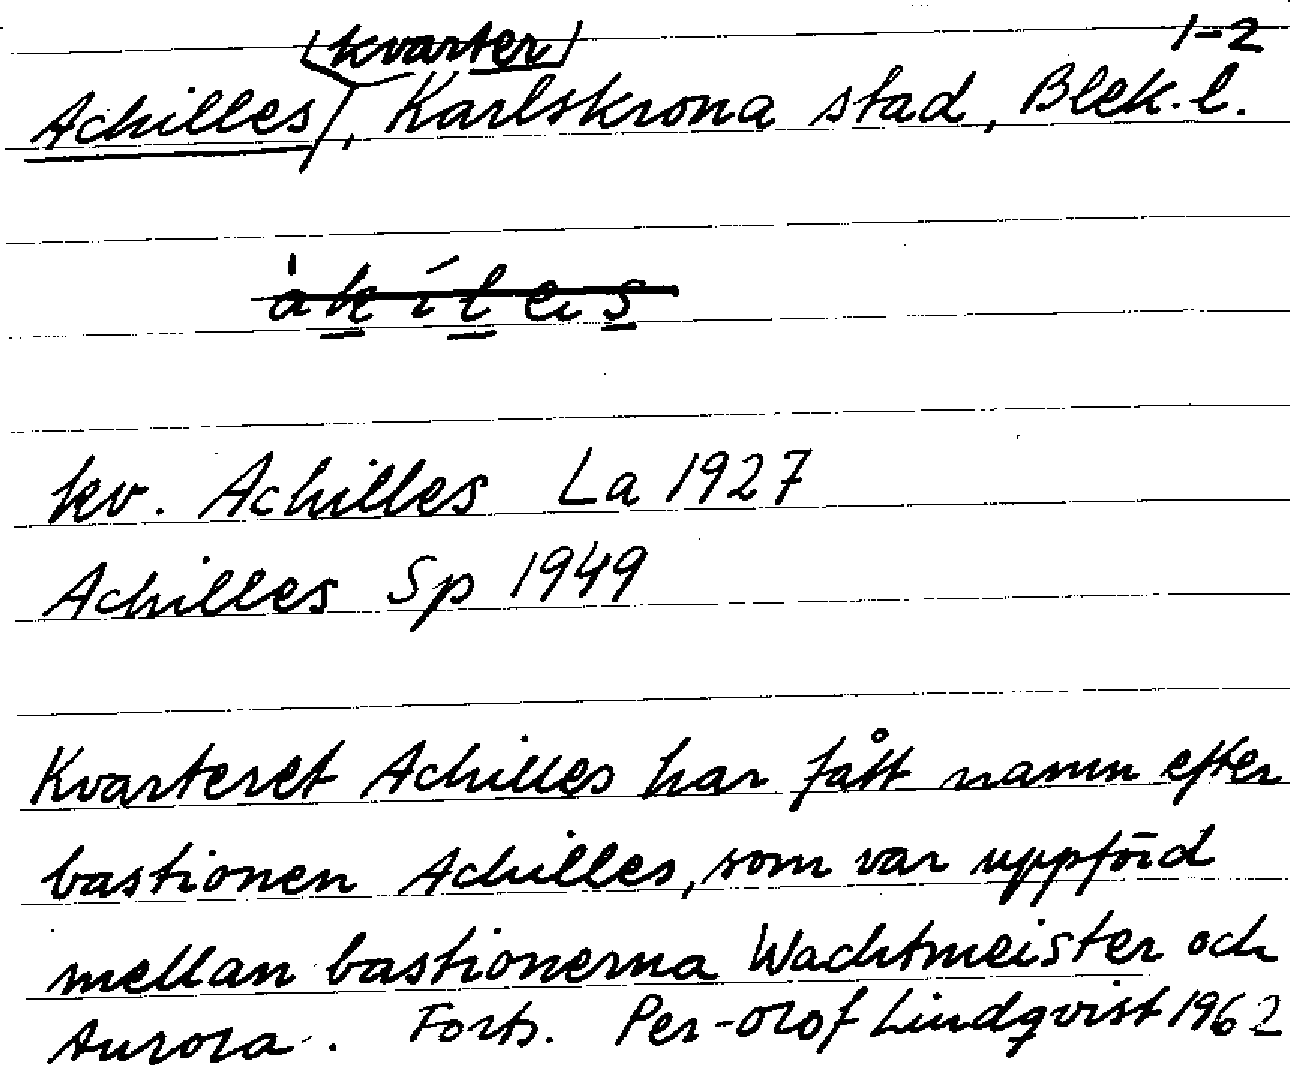 (kvarter) 1-2
Achilles, Karlskrona stad, Blek. l.
kv. Achilles La 1927
Achilles Sp 1949
Kvarteret Achilles har fått namn efter
bastionen Achilles, som var uppförd
mellan bastionerna Wachtmeister och
Aurora. Forts. Per-Olof Lindqvist 1962